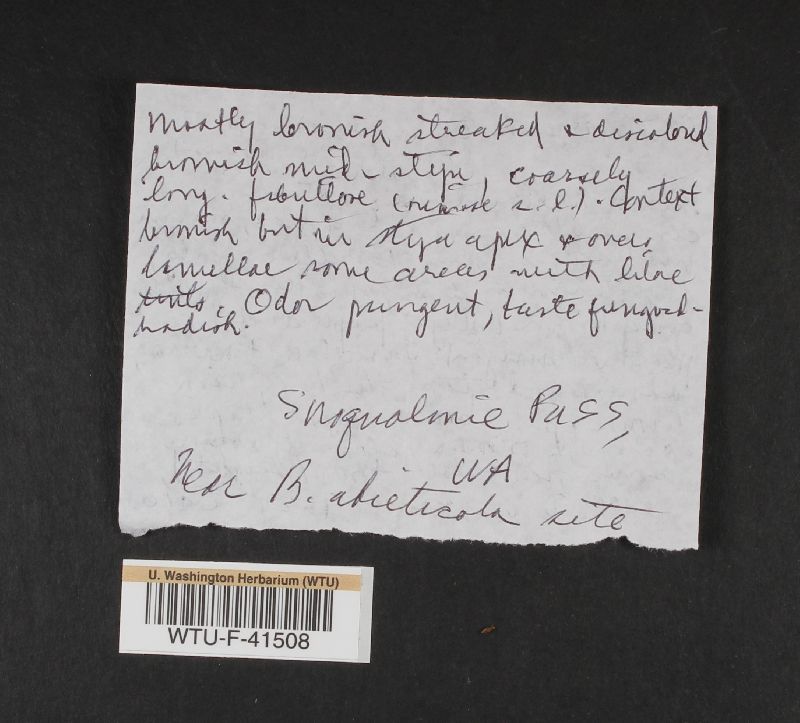 mostly bronish streaked & discolored
bronish mid-stipe, coarsely
long. fibrillose (rimose s.l.). Context
bronish but in stipe apex & over
lamellae some areas with lilac
tints. Odor pungent, taste fungoid-
radish.
Snoqualmie Pass,
WA
Near B. abieticola site
U. Washington Herbarium (WTU)
WTU-F-41508